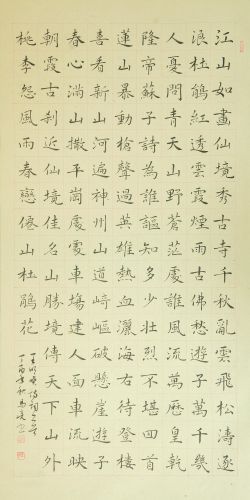 江山如畫仙境秀古寺千秋亂雲飛松濤
浪杜鵑紅透雲霞煙雨古佛愁遊子萬千幾
人憂問青天山野蒼茫處誰風流萬歷皇乾
隆帝蘇子詩為誰謳知多少壯烈不堪回
蓮山暴動槍聲過英雄熱血灑海右待登樓
喜看新山河遍神州山道崎嶇破懸崖遊子
春心滿山撒平崗處處車場建人面車流映
朝霞古剎近仙境佳名山勝境傳天下山外
桃李怨風雨春戀僊山杜鵑花